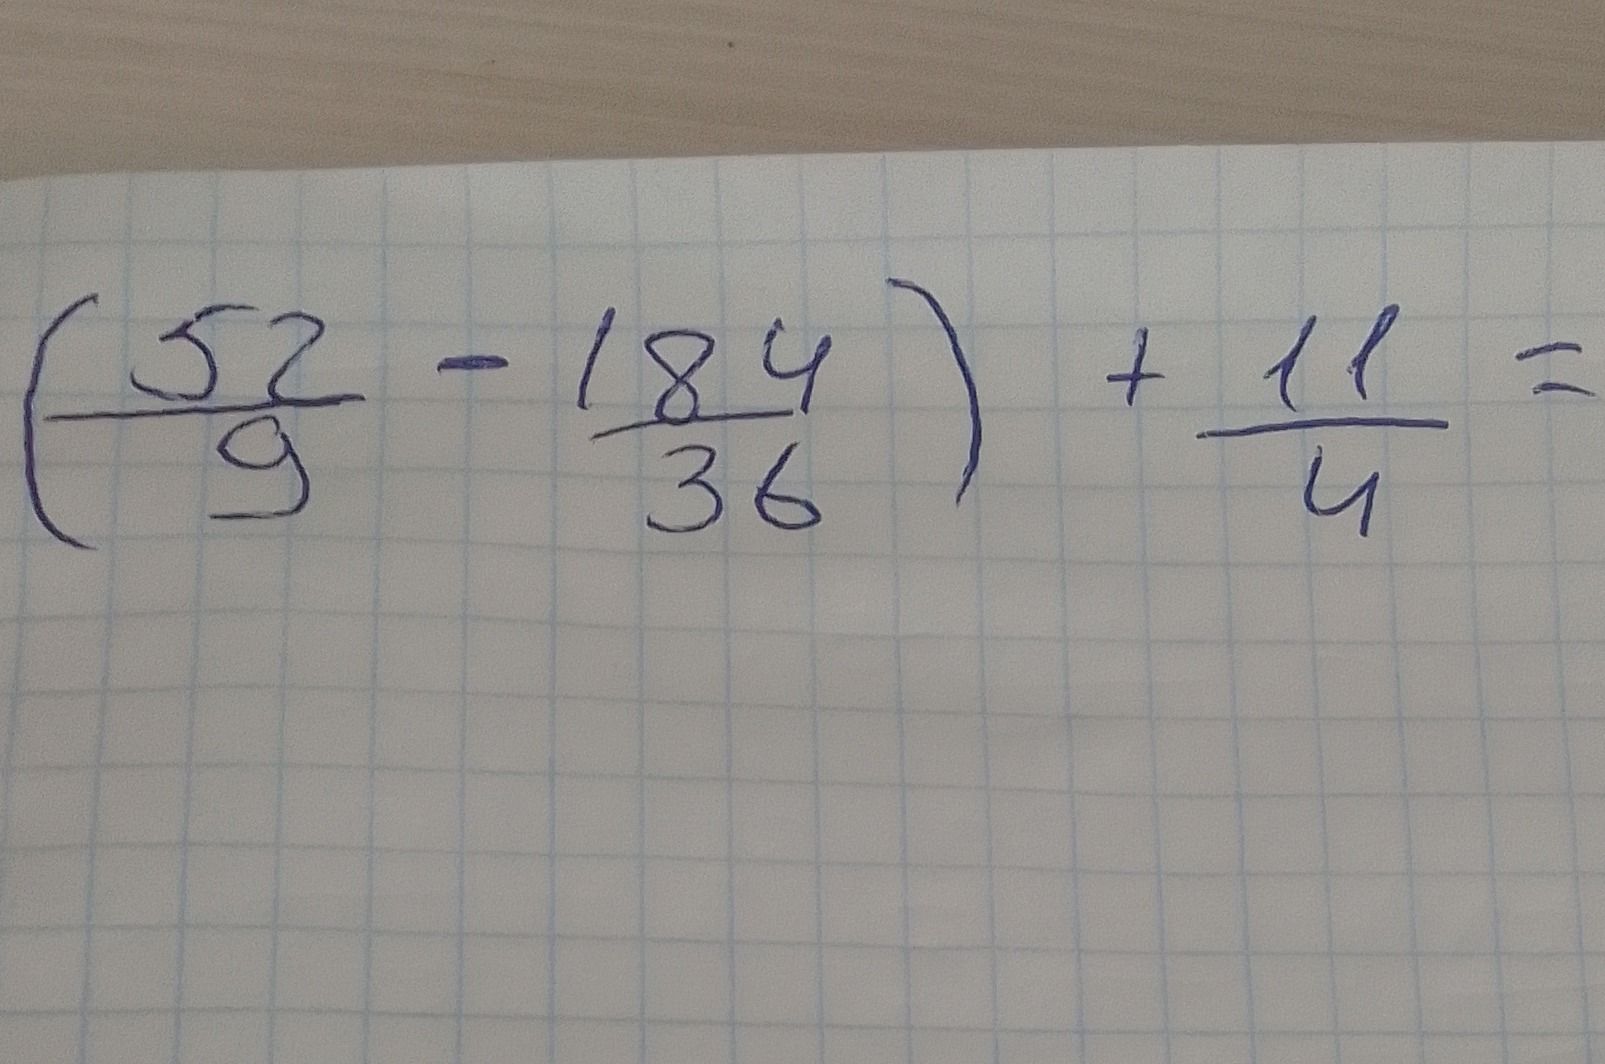 (52/9 - 184/36) + 11/4 =